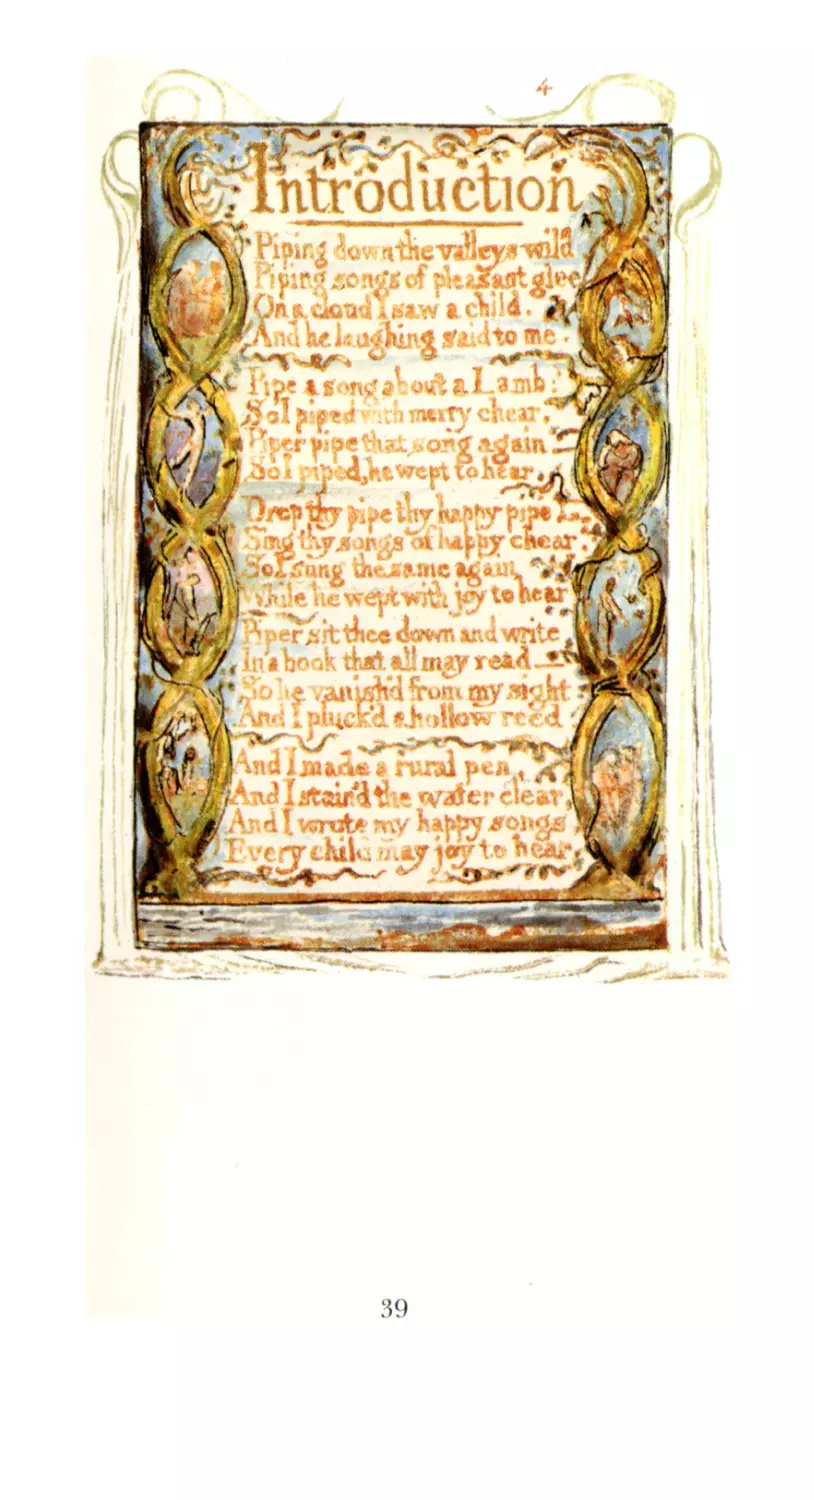 4
Introduction
Piping down the valleys wild
Piping songs of pleasant glee
On a cloud I saw a child.
And he laughing said to me.
Pipe a song about a Lamb:
So I piped with merry chear,
Piper pipe that song again—
So I piped, he wept to hear.
Drop thy pipe thy happy pipe
Sing thy songs of happy chear
So I sung the same again
While he wept with joy to hear
Piper sit thee down and write
In a book that all may read—
So he vanish'd from my sight
And I pluck'd a hollow reed.
And I made a rural pen,
And I stain'd the water clear,
And I wrote my happy songs
Every child may joy to hear.
39